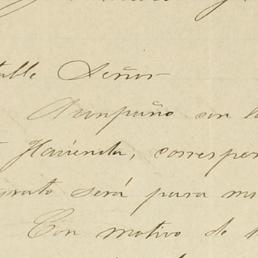 Señor
Acompaño con l
Hacienda, correspon
grato será para m
Con motivo de